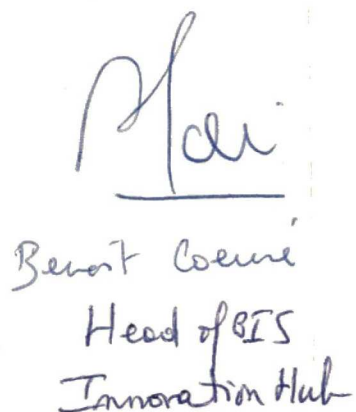 Benoît Coeuré
Head of BIS
Innovation Hub